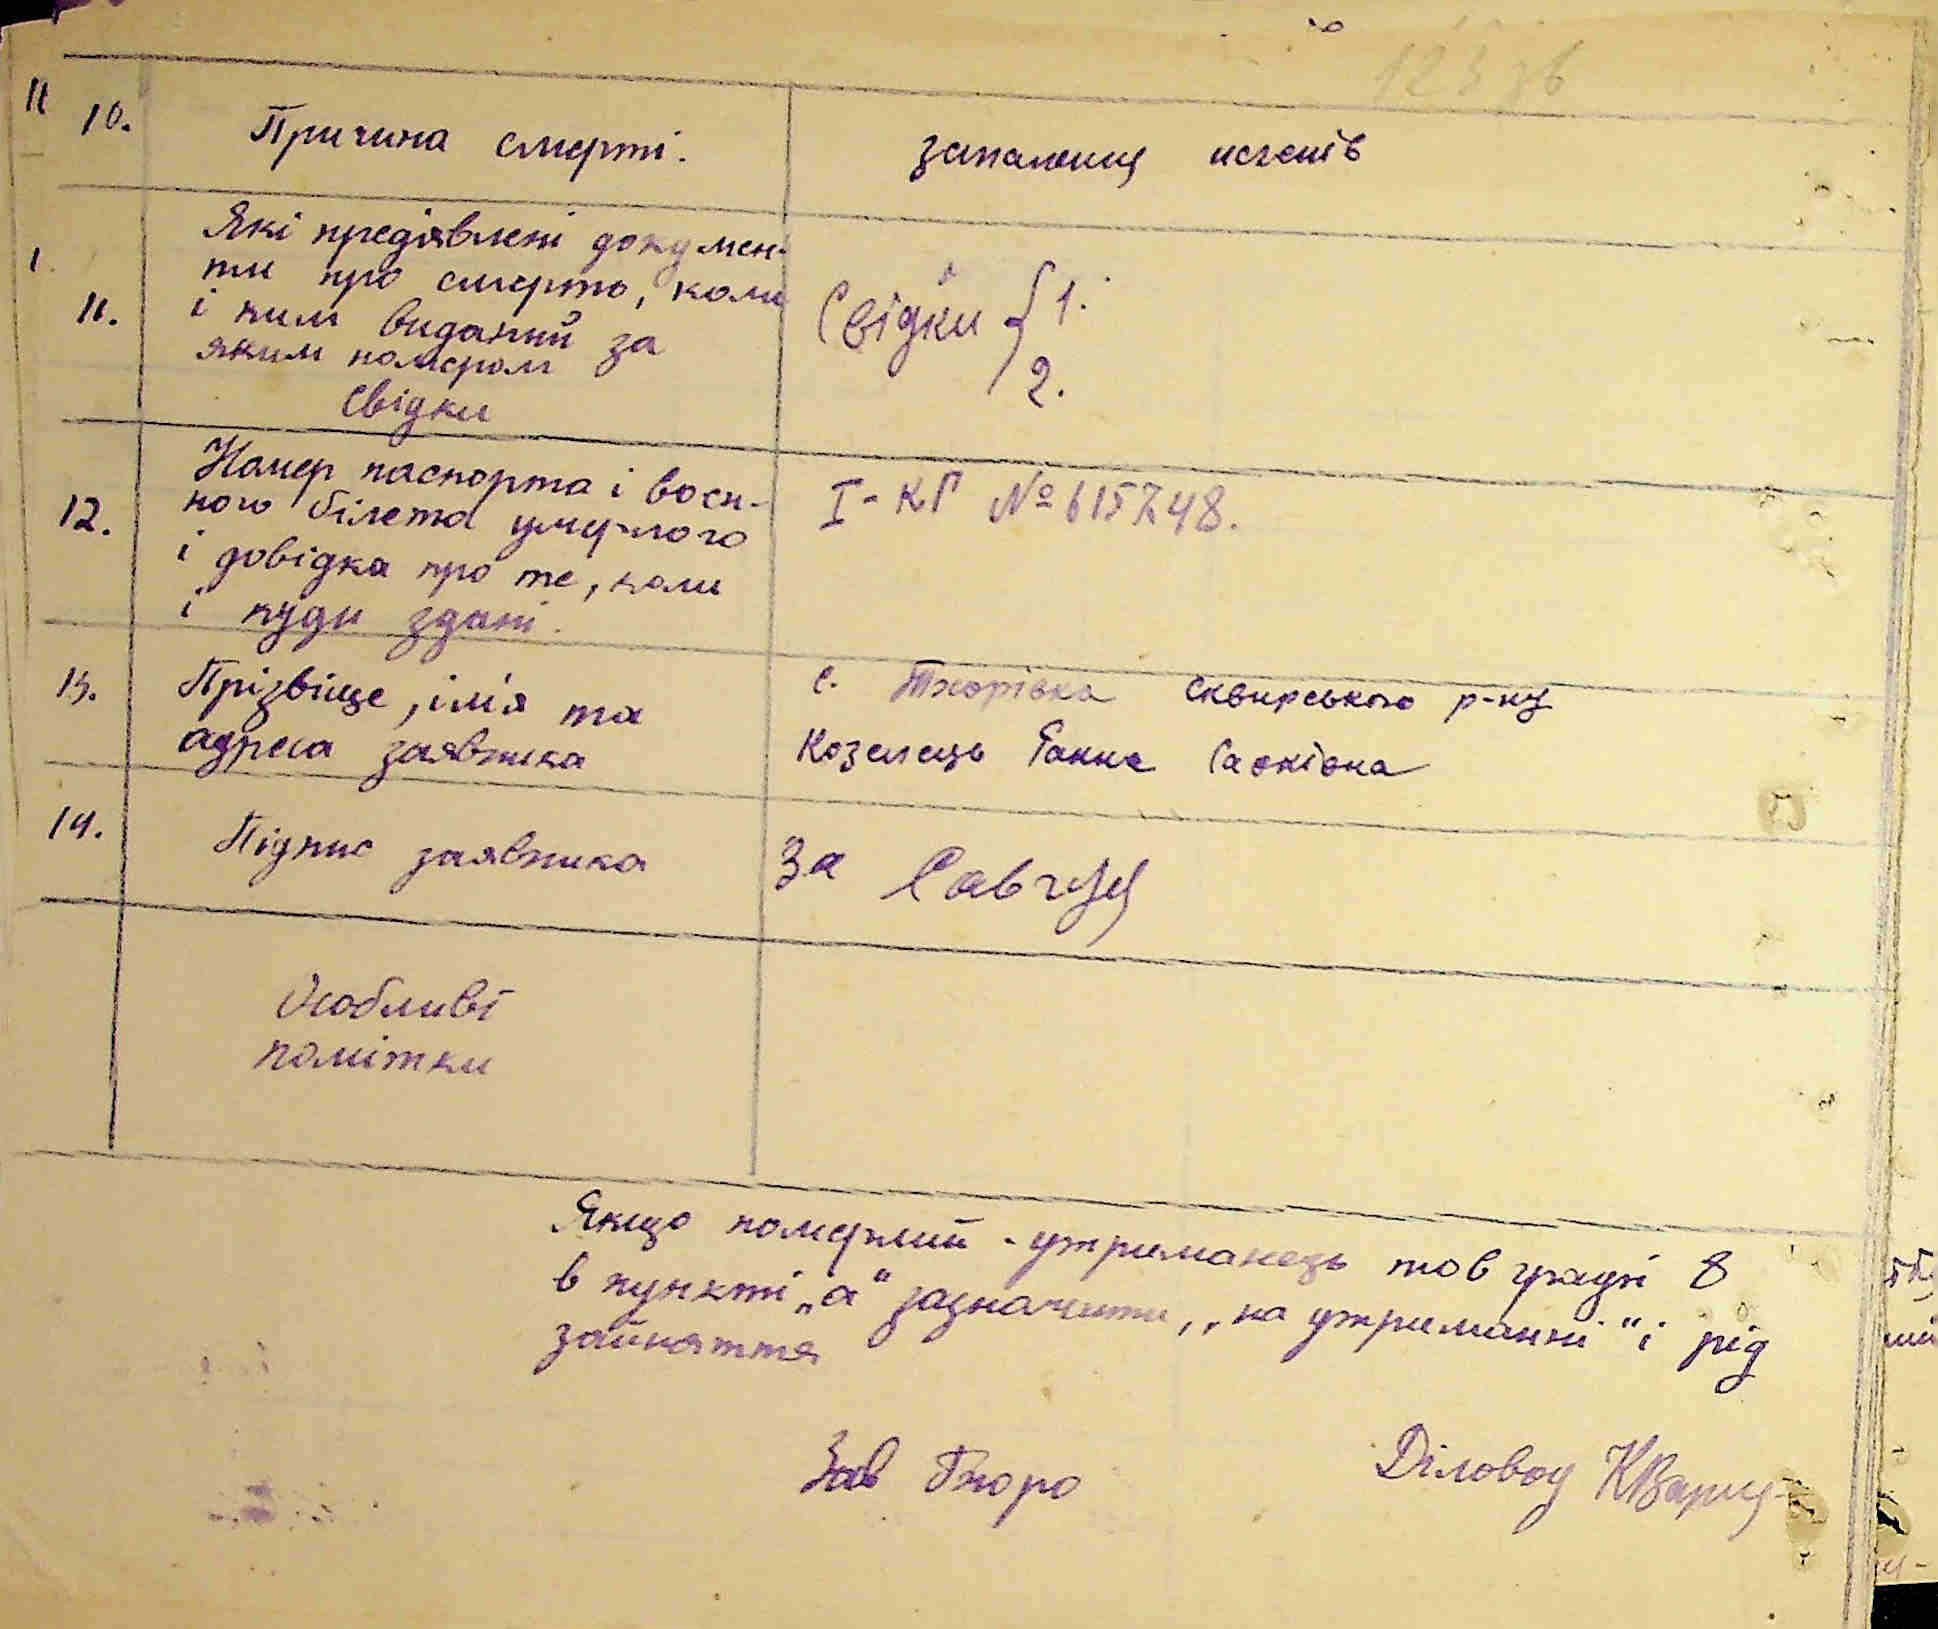 123 зв
10. Причина смерті. запалення
Які предявлені докумен-
ти про смерть, коли
11. і ким виданий за
яким номером
Свідки
Свідки { 1.
2.
Номер паспорта і воєн-
12. ного білета умерлого
і довідка про те, коли
і куди здані.
I-КГ № 615748.
13. Прізвіще, імя та
адреса заявника
с. Тхорівка Сквирського р-ну
Козелець Ганна Савківна
14. Підпис заявника За Савчук
Особливі
помітки
Якщо померлий - утриманець то в графі 8
в пункті „а" зазначити, „на утриманні" і рід
зайняття
Зав Бюро Діловод